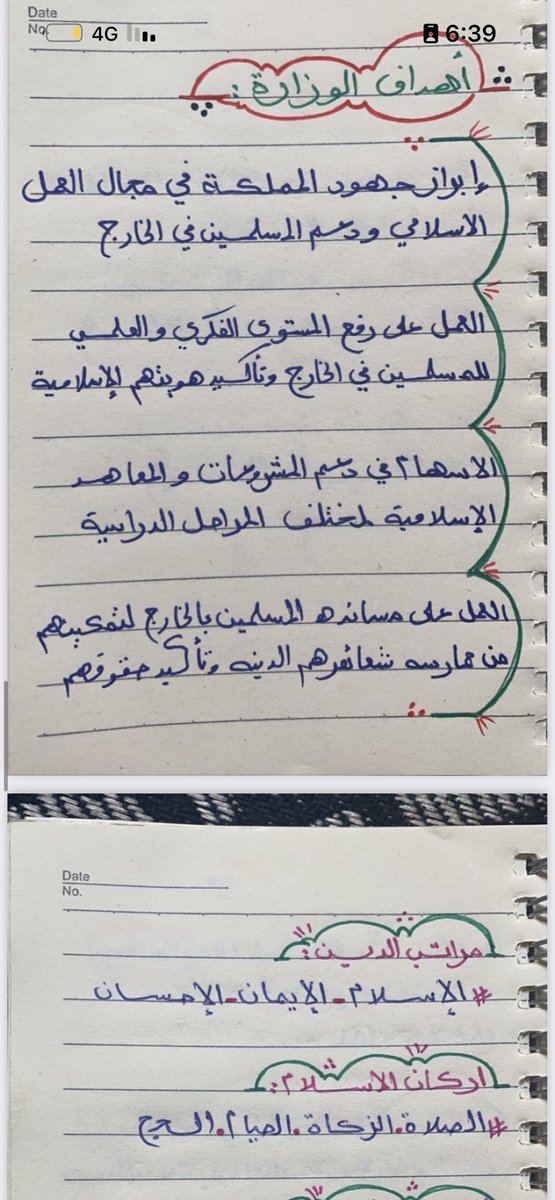 Date
No.
4G
6:39
أهداف الوزارة:
إبراز جهود المملكة في مجال العمل
الاسلامي ودعم المسلمين في الخارج
العمل على رفع المستوى الفكري والعلمي
للمسلمين في الخارج وتأكيد هويتهم الإسلامية
الاسهام في دعم المشروعات والمعاهد
الإسلامية لمختلف المراحل الدراسية
العمل على مسانده المسلمين بالخارج لتمكينهم
من ممارسه شعائرهم الدينه وتأكيد حقوقهم
Date
No.
مراتب الدين:
#الإسلام-الإيمان-الإحسان
اركان الاسلام:
#الصلاة.الزكاة.الصيام.الحج